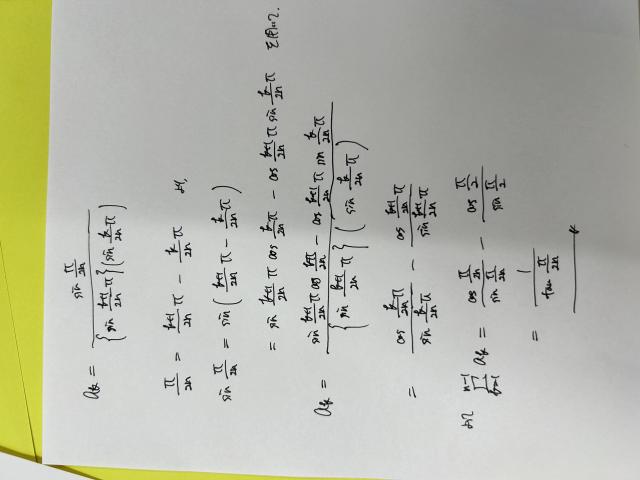 a_k = \frac{\sin\frac{\pi}{2n}}{\left\{\sin\frac{k+1}{2n}\pi\right\}\left(\sin\frac{k}{2n}\pi\right)}
\frac{\pi}{2n} = \frac{k+1}{2n}\pi - \frac{k}{2n}\pi より,
\sin\frac{\pi}{2n} = \sin\left(\frac{k+1}{2n}\pi - \frac{k}{2n}\pi\right)
= \sin\frac{k+1}{2n}\pi\cos\frac{k}{2n}\pi - \cos\frac{k+1}{2n}\pi\sin\frac{k}{2n}\pi を用いて.
a_k = \frac{\sin\frac{k+1}{2n}\pi\cos\frac{k}{2n}\pi - \cos\frac{k+1}{2n}\pi\sin\frac{k}{2n}\pi}{\left\{\sin\frac{k+1}{2n}\pi\right\}\left(\sin\frac{k}{2n}\pi\right)}
= \frac{\cos\frac{k}{2n}\pi}{\sin\frac{k}{2n}\pi} - \frac{\cos\frac{k+1}{2n}\pi}{\sin\frac{k+1}{2n}\pi}
よって \sum_{k=1}^{n-1} a_k = \frac{\cos\frac{\pi}{2n}}{\sin\frac{\pi}{2n}} - \frac{\cos\frac{\pi}{2}}{\sin\frac{\pi}{2}}
= \frac{1}{\tan\frac{\pi}{2n}}